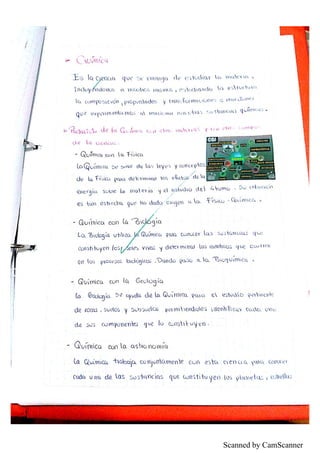 - Química
Es la ciencia que se encarga de estudiar la materia,
o nosotros mismos, estudiando la estructura
la composición, propiedades y transformaciones o reacciones
que experimenta sustancias químicas.
de la Química con otras y con otros campos
de la ciencia:
- Química con la Física
La Química se sirve de las leyes y conceptos
de la Física para determinar los efectos de la
energía sobre la materia y el estudio del átomo. Su relación
es tan estrecha que ha dado origen a la Física - Química.
- Química con la Biología
La Biología utiliza la Química para conocer las sustancias que
constituyen los seres vivos y determina los cambios que ocurren
en los procesos biológicos. Dando paso a la Bioquímica.
- Química con la Geología
la Geología se ayuda de la Química para el estudio pertinente
de rocas, suelos y subsuelos permitiendoles identificar cada uno
de sus componentes que lo constituyen.
- Química con la astronomía
La Química trabaja conjuntamente con esta ciencia para conocer
cada una de las sustancias que constituyen los planetas, estrellas
Scanned by CamScanner